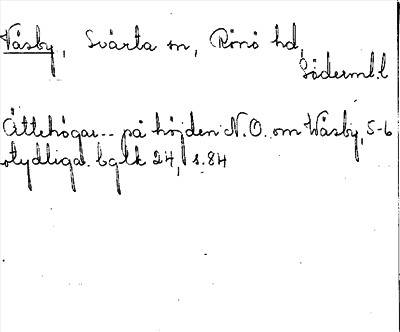 Våsby, Svärta sn, Rönö hd,
Söderml. l
Ättehögar -- på höjden N.O. om Wåsby, 5-6
otydliga. bglk 24, s. 84